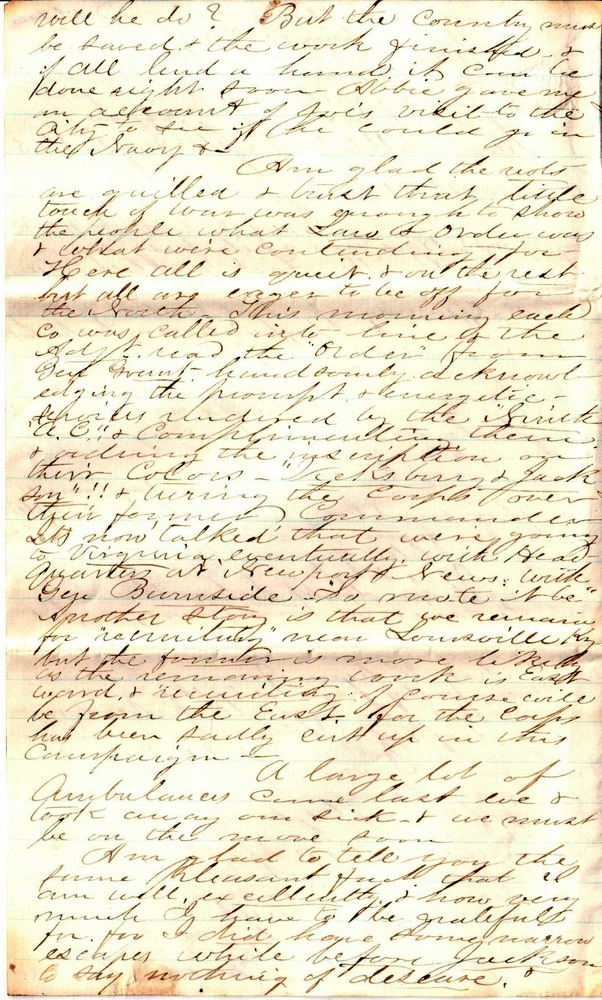 will he do? But the country must
be saved & the work finished &
if all lend a hand it can be
done right soon - Abbie gave me
an account of Joe's visit to the
city to see if he could go in
the Navy &-
Am glad the riots
are quelled & trust that little
touch of war was enough to show
the people what Law & Order was
& what we're contending for
Here all is quiet & on the rest
but all are eager to be off for
the North - This morning each
Co was called into line & the
Adjt. read the "Order" from
Gen Grant - handsomely acknowl
edging the prompt & energetic -
services rendered by the "Ninth
A.C." & complimenting them
& ordering the inscription on
their Colors - "Vicksburg & Jack
son"!! & turning the Corps over
their former Commander
It's now talked that we're going
to Virginia eventually with Head
Quarters at Newport News: with
Gen Burnside - "So mote it be"
Another story is that we remain
for "recruiting" near Louisville Ky
but the former is more likely
as the remaining work is East
ward, & recruiting of course will
be from the East. for the Corps
has been sadly cut up in this
Campaign -
A large lot of
Ambulances came last eve &
took away our sick - & we must
be on the move soon
Am glad to tell you the
same pleasant fact that I
am well, excellently, & how very
much I have to be grateful
for. for I did have some narrow
escapes while before Jackson
to say nothing of disease."